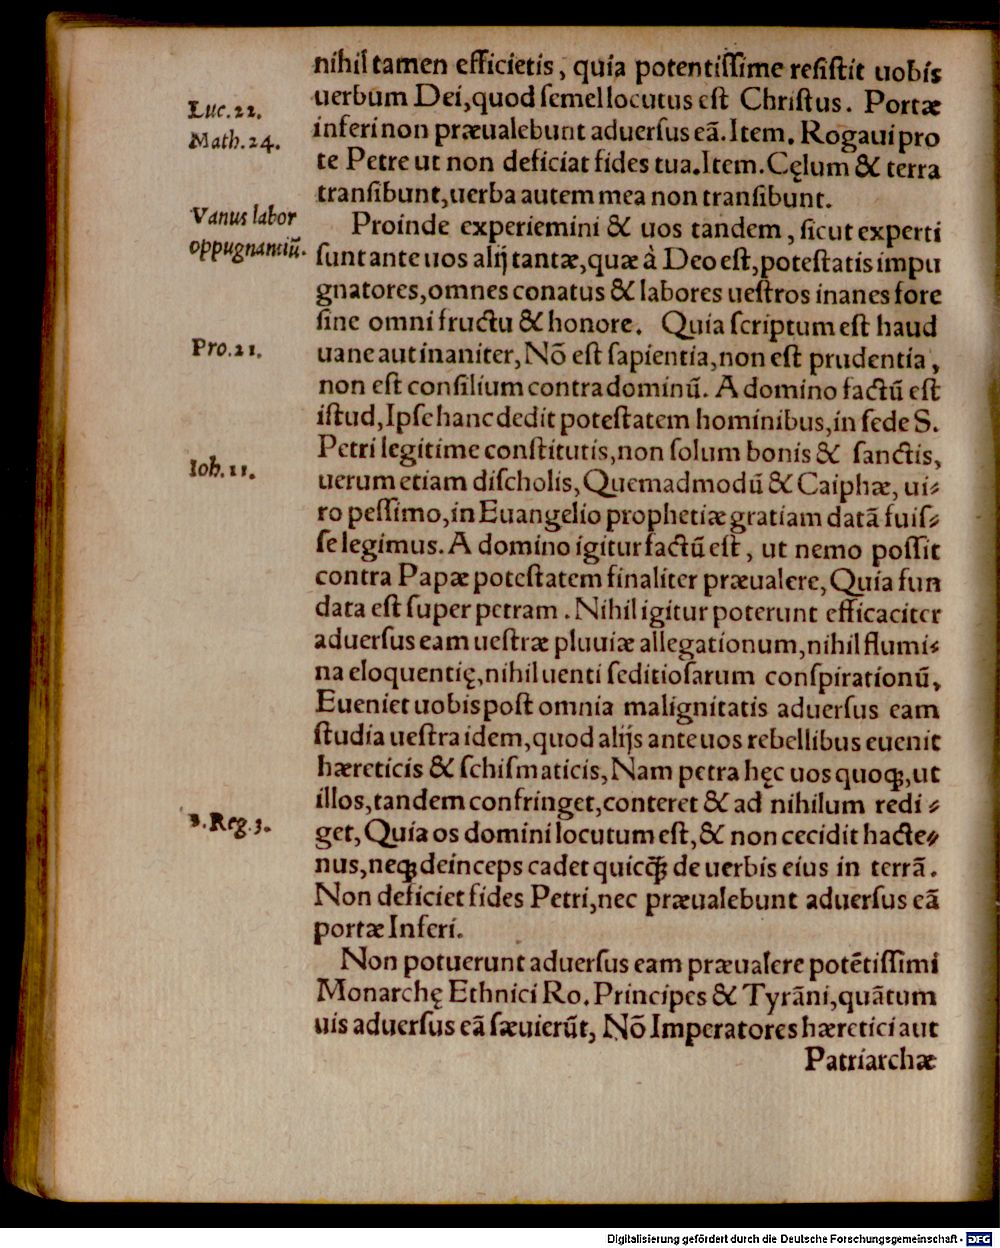 nihil tamen efficietis, quia potentiſſime reſiſtit uobis
uerbum Dei, quod ſemel locutus eſt Chriſtus. Portæ
Luc.22.
inferi non præualebunt aduerſus eã. Item. Rogaui pro
Math.24.
te Petre ut non deficiat fides tua. Item. Cęlum & terra
tranſibunt, uerba autem mea non tranſibunt.
Vanus labor
oppugnantiũ.
Proinde experiemini & uos tandem, ſicut experti
ſunt ante uos alij tantæ, quæ à Deo eſt, poteſtatis impu
gnatores, omnes conatus & labores ueſtros inanes fore
ſine omni fructu & honore. Quia ſcriptum eſt haud
Pro.21.
uane aut inaniter, Nõ eſt ſapientia, non eſt prudentia,
non eſt conſilium contra dominũ. A domino factũ eſt
iſtud, Ipſe hanc dedit poteſtatem hominibus, in ſede S.
Petri legitime conſtitutis, non ſolum bonis & ſanctis,
Ioh.11.
uerum etiam diſcholis, Quemadmodũ & Caiphæ, ui⸗
ro peſſimo, in Euangelio prophetiæ gratiam datã fuiſ⸗
ſe legimus. A domino igitur factũ eſt, ut nemo poſſit
contra Papæ poteſtatem finaliter præualere, Quia fun
data eſt ſuper petram. Nihil igitur poterunt efficaciter
aduerſus eam ueſtræ pluuiæ allegationum, nihil flumi⸗
na eloquentię, nihil uenti ſeditioſarum conſpirationũ,
Eueniet uobis poſt omnia malignitatis aduerſus eam
ſtudia ueſtra idem, quod alijs ante uos rebellibus euenit
hæreticis & ſchiſmaticis, Nam petra hęc uos quoq;, ut
illos, tandem confringet, conteret & ad nihilum redi⸗
3.Reg.3.
get, Quia os domini locutum eſt, & non cecidit hacte⸗
nus, neq; deinceps cadet quicq̃; de uerbis eius in terrã.
Non deficiet fides Petri, nec præualebunt aduerſus eã
portæ Inferi.
Non potuerunt aduerſus eam præualere potẽtiſſimi
Monarchę Ethnici Ro. Principes & Tyrãni, quãtum
uis aduerſus eã ſæuierũt, Nõ Imperatores hæretici aut
Patriarchæ
Digitalisierung gefördert durch die Deutsche Forschungsgemeinschaft - DFG